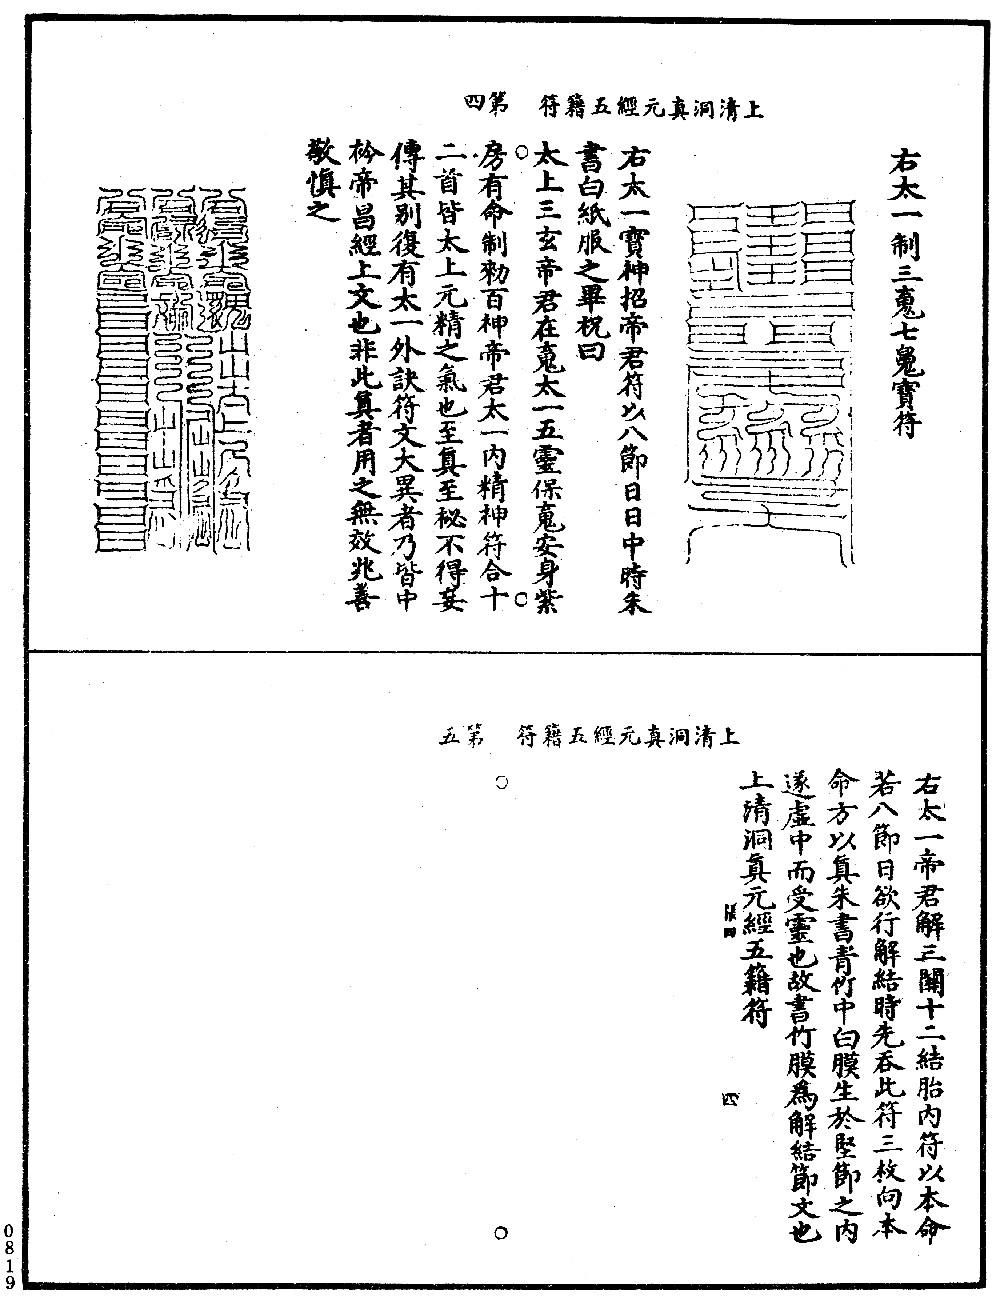 上清洞真元經五籍符　第四
右太一制三䰟七䰟寶符
右太一寶神招帝君符以八節日日中時朱
書白紙服之畢祝曰
太上三玄帝君在䰟太一五靈保䰟安身紫
房有命制勑百神帝君太一內精神符合十
二首皆太上元精之氣也至真至祕不得妄
傳其別復有太一外訣符文大異者乃皆中
衿帝昌經上文也非此真者用之無效兆善
敬慎之
上清洞真元經五籍符　第五
右太一帝君解三關十二結胎內符以本命
若八節日欲行解結時先吞此符三枚向本
命方以真朱書青竹中白膜生於堅節之內
遂虛中而受靈也故書竹膜為解結節文也
上清洞真元經五籍符
四
0819